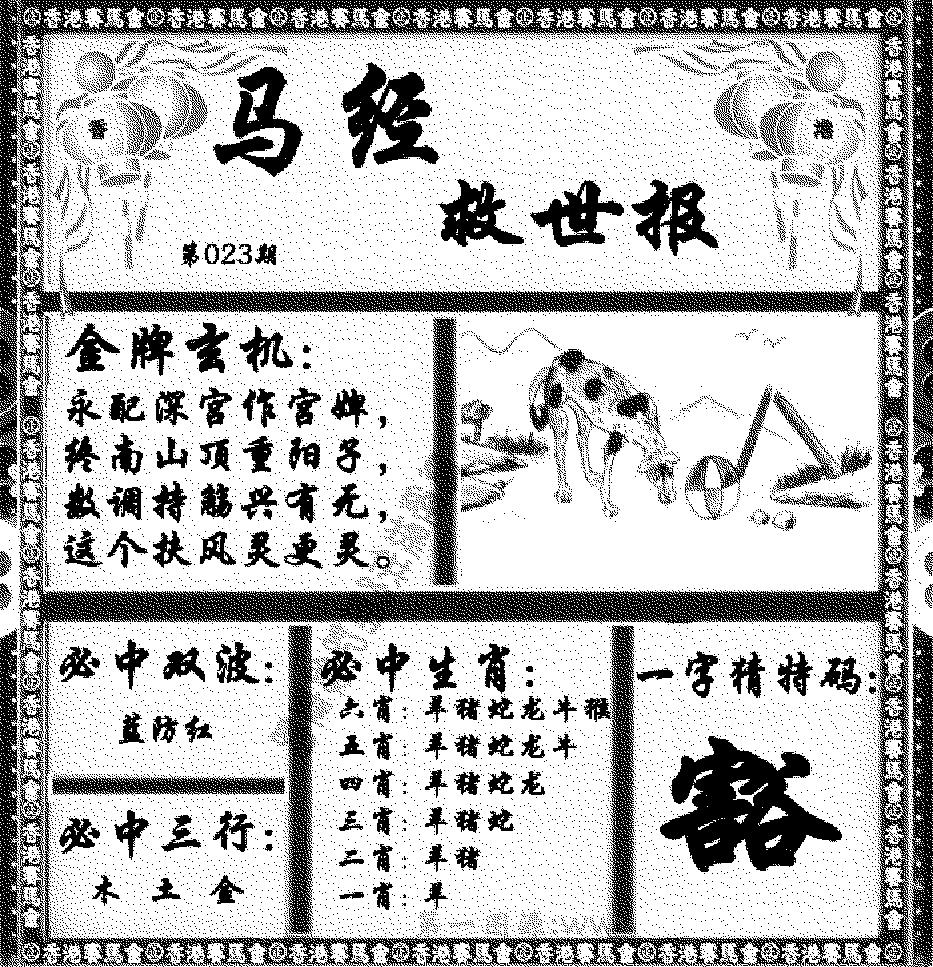 香港賽馬會 香港賽馬會 香港賽馬會 香港賽馬會 香港賽馬會 香港賽馬會 香港賽馬會
香
港
马经
救世报
第023期
金牌玄机:
永配深宫作宫婢,
终南山顶重阳子,
数调持觞兴有无,
这个扶风灵更灵。
必中双波:
蓝防红
必中三行:
木 土 金
必中生肖:
六肖: 羊猪蛇龙牛猴
五肖: 羊猪蛇龙牛
四肖: 羊猪蛇龙
三肖: 羊猪蛇
二肖: 羊猪
一肖: 羊
一字猜特码:
豁
香港賽馬會 香港賽馬會 香港賽馬會 香港賽馬會 香港賽馬會 香港賽馬會 香港賽馬會